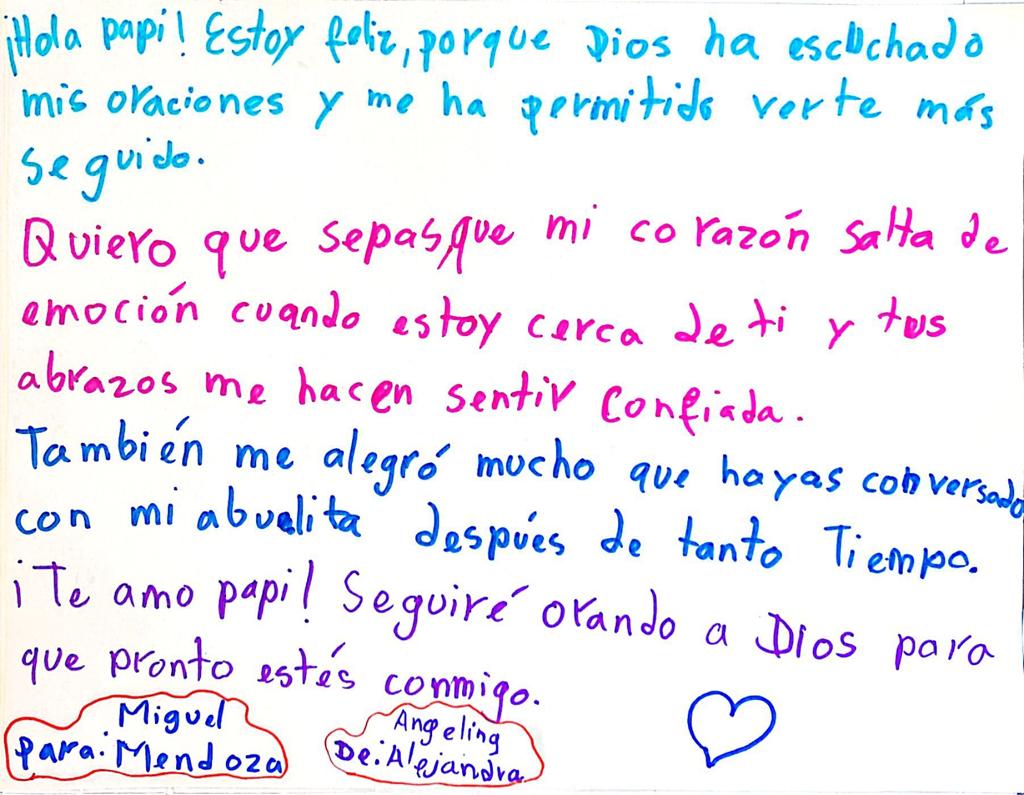 ¡Hola papi! Estoy feliz, porque Dios ha escuchado
mis oraciones y me ha permitido verte más
seguido.
Quiero que sepas, que mi corazón salta de
emoción cuando estoy cerca de ti y tus
abrazos me hacen sentir confiada.
También me alegró mucho que hayas conversado
con mi abuelita después de tanto Tiempo.
¡Te amo papi! Seguiré orando a Dios para
que pronto estés conmigo.
Miguel
Para: Mendoza
Angeling
De: Alejandra